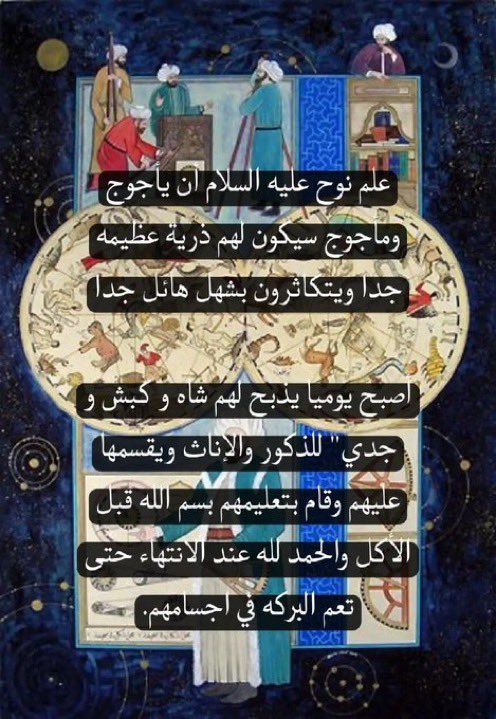 علم نوح عليه السلام ان يأجوج
ومأجوج سيكون لهم ذرية عظيمه
جدا ويتكاثرون بشهل هائل جدا
اصبح يوميا يذبح لهم شاه و كبش و
جدي" للذكور والإناث ويقسمها
عليهم وقام بتعليمهم بسم الله قبل
الأكل والحمد لله عند الانتهاء حتى
تعم البركه في اجسامهم.